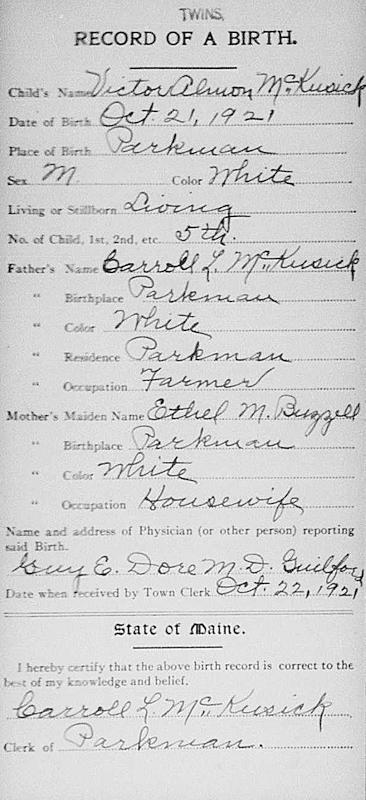 TWINS,
RECORD OF A BIRTH.
Child's Name Victor Almon McKusick
Date of Birth Oct. 21, 1921
Place of Birth Parkman
Sex M. Color White
Living or Stillborn Living
No. of Child, 1st, 2nd, etc. 5th.
Father's Name Carroll L. McKusick
" Birthplace Parkman
" Color White
" Residence Parkman
" Occupation Farmer
Mother's Maiden Name Ethel M. Buzzell
" Birthplace Parkman
" Color White
" Occupation Housewife
Name and address of Physician (or other person) reporting
said Birth.
Guy E. Dore M.D. Guilford
Date when received by Town Clerk Oct. 22, 1921
State of Maine.
I hereby certify that the above birth record is correct to the
best of my knowledge and belief.
Carroll L. McKusick
Clerk of Parkman.